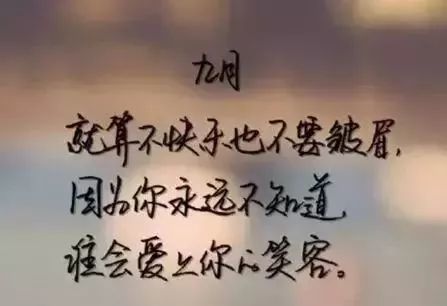 九月
就算不快乐也不要皱眉,
因为你永远不知道,
谁会爱上你的笑容。